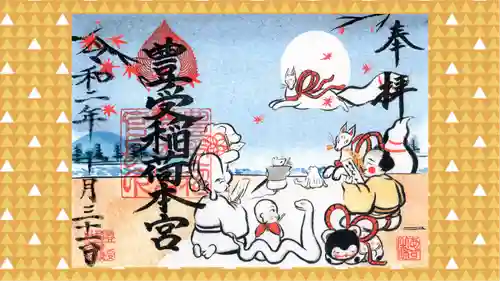 奉拝
豊受稲荷本宮
令和二年十月三十一日